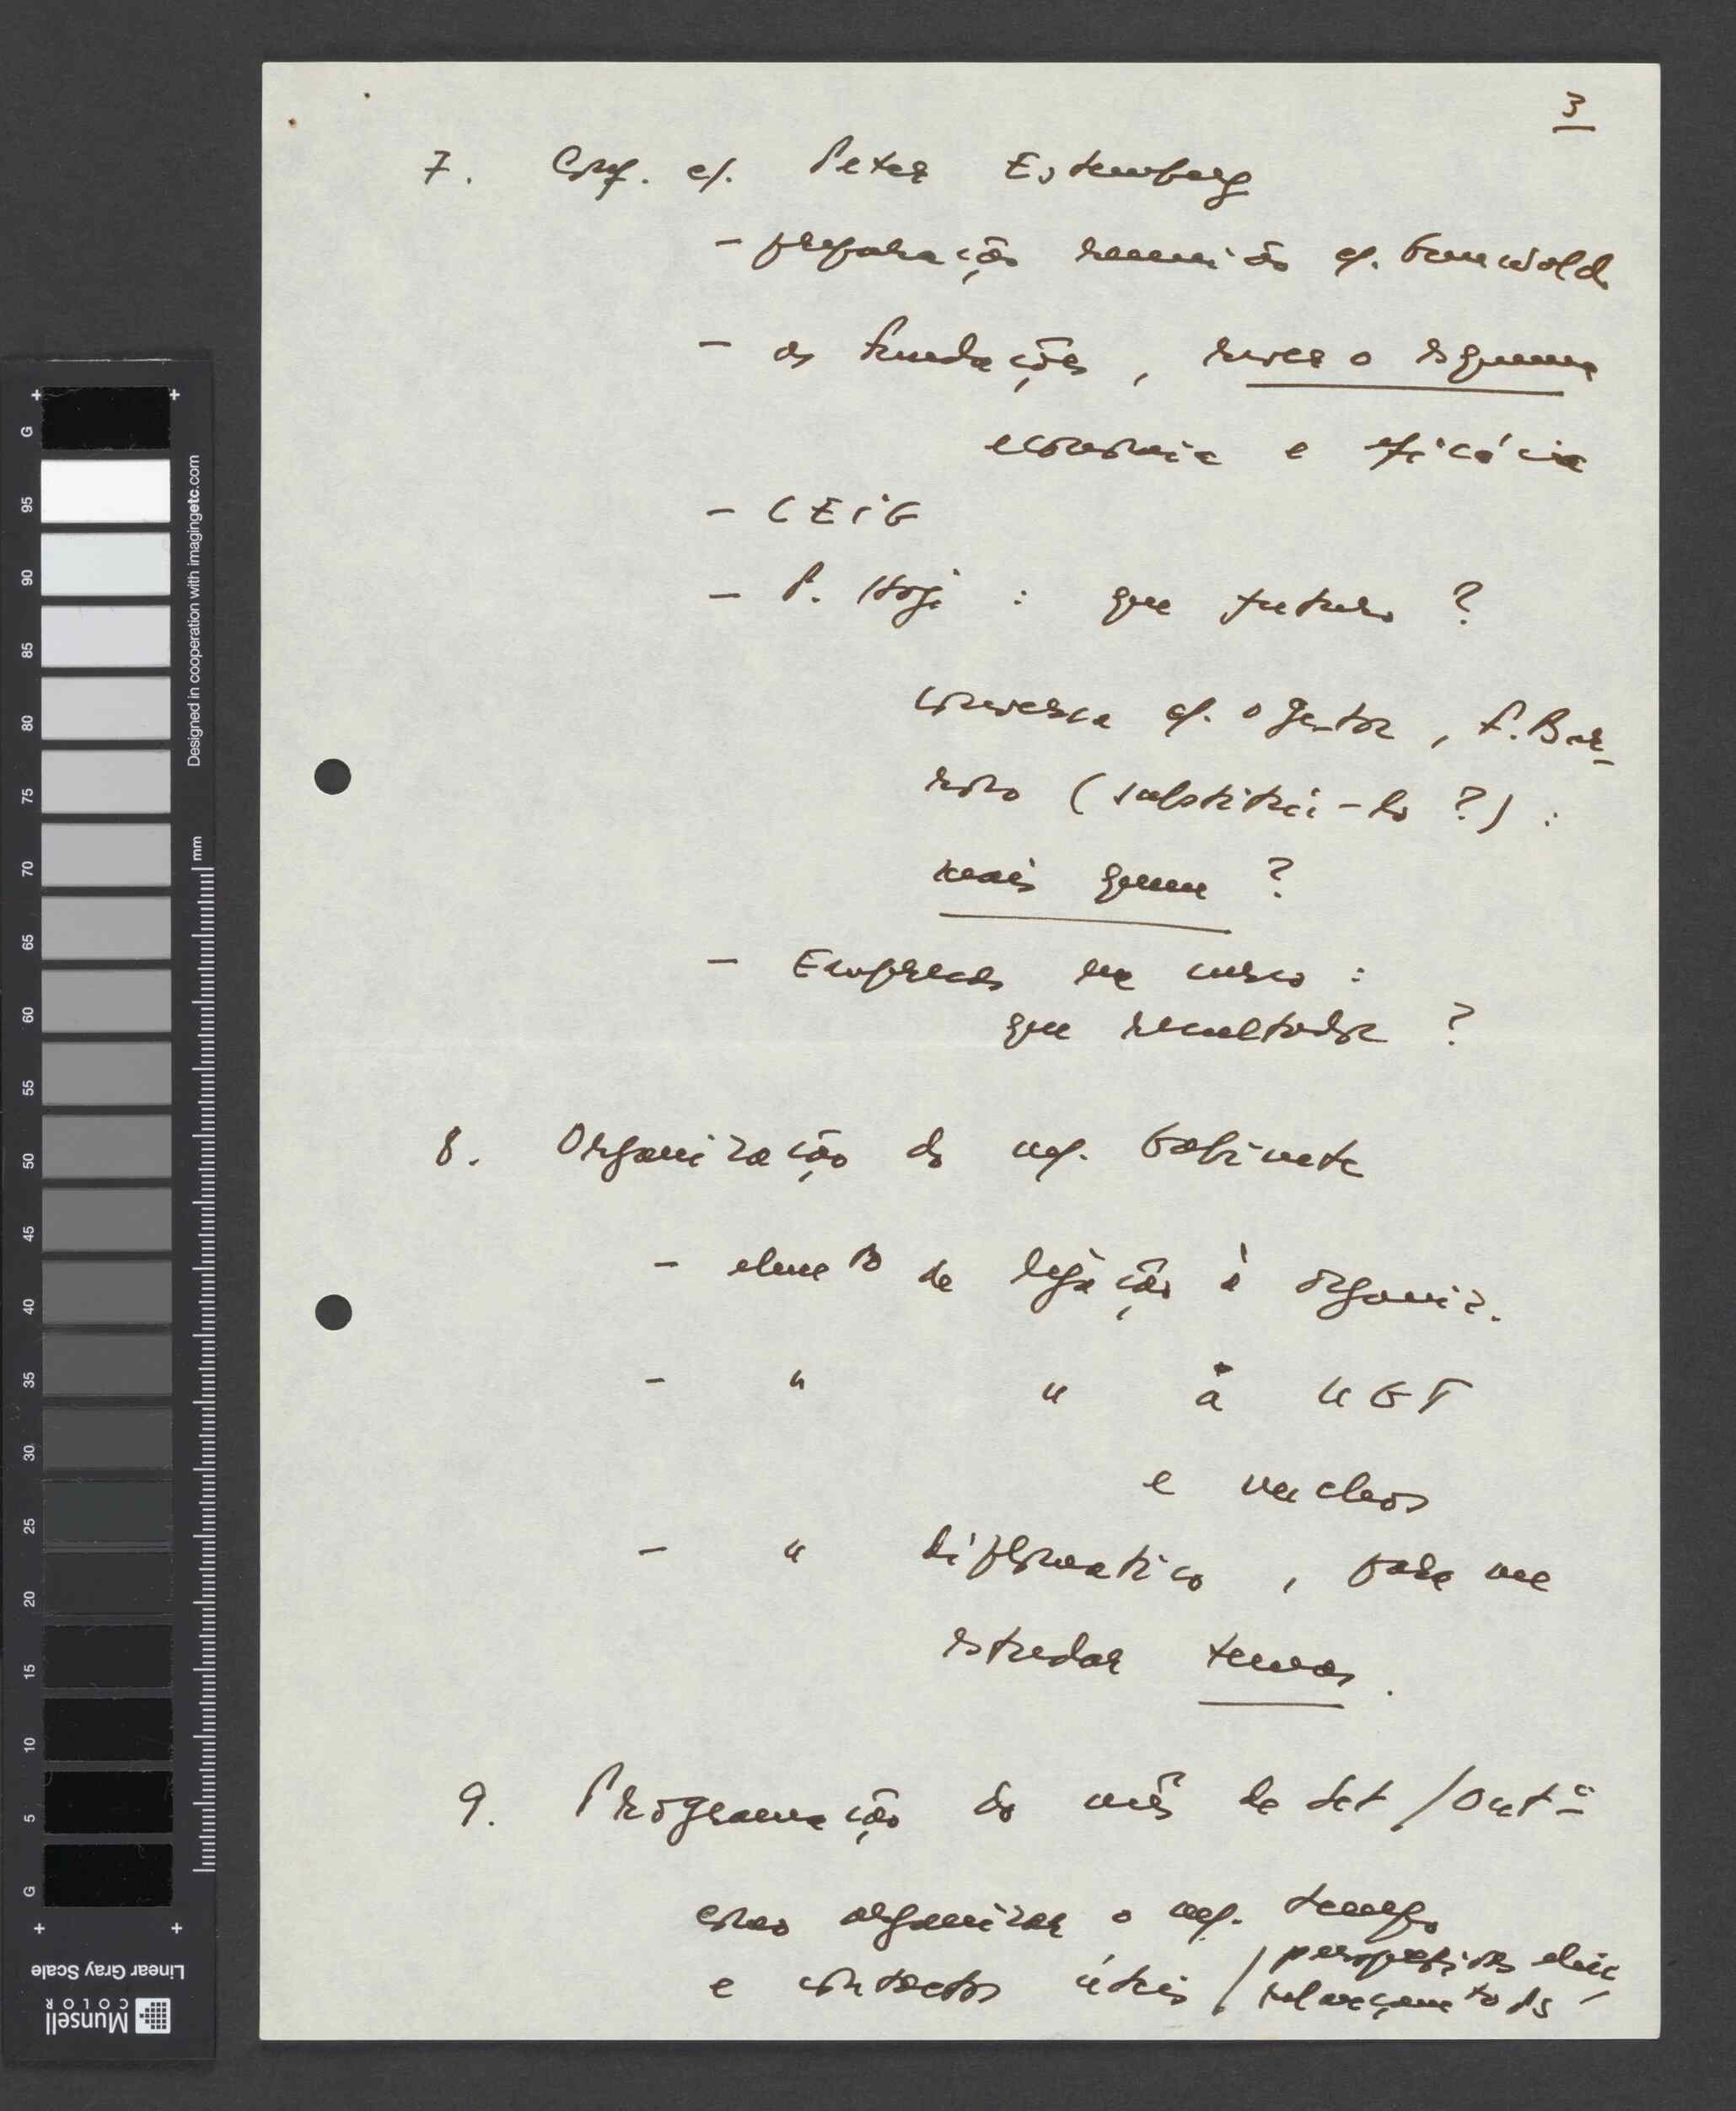 3
7. Conf. c/. Peter Estemberg
- preparação reunião c/. Grunwald
- as Fundações, rever o esquema
economia e eficácia
- CEIG
- P. Hoje : que futuro ?
conversa c/. o gestor, F. Bar-
roso (substituí-lo ?) :
mais quem ?
- Empresas em curso :
que resultados ?
8. Organização do meu Gabinete
- elemento de ligação à organiz.
- " " à UGT
e nucleos
- " diplomatico, para me
estudar temas.
9. Programação do mês de Set / Outº
como organizar o meu tempo
e contactos úteis / perspectivas eleiç,
relançamento do PS
G
95
90
85
80
75
70
65
60
55
50
45
40
35
30
25
20
15
10
5
G
mm
Designed in cooperation with imagingetc.com
Linear Gray Scale
Munsell
COLOR